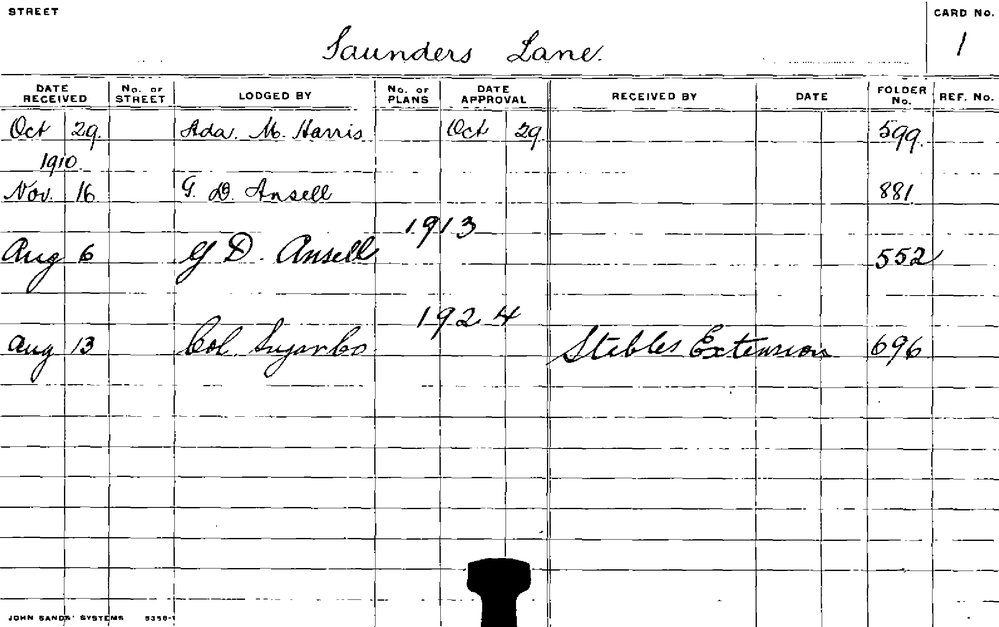 STREET CARD No.
Saunders Lane. 1
DATE RECEIVED No. OF STREET LODGED BY No. OF PLANS DATE APPROVAL RECEIVED BY DATE FOLDER No. REF. No.
Oct 29. Ada. M. Harris Oct 29. 599.
1910.
Nov. 16 G. D. Ansell 881.
1913
Aug 6 G D. Ansell 552
1924
Aug 13 Col. Sugar Co. Stables Extension 696
JOHN SANDS' SYSTEMS